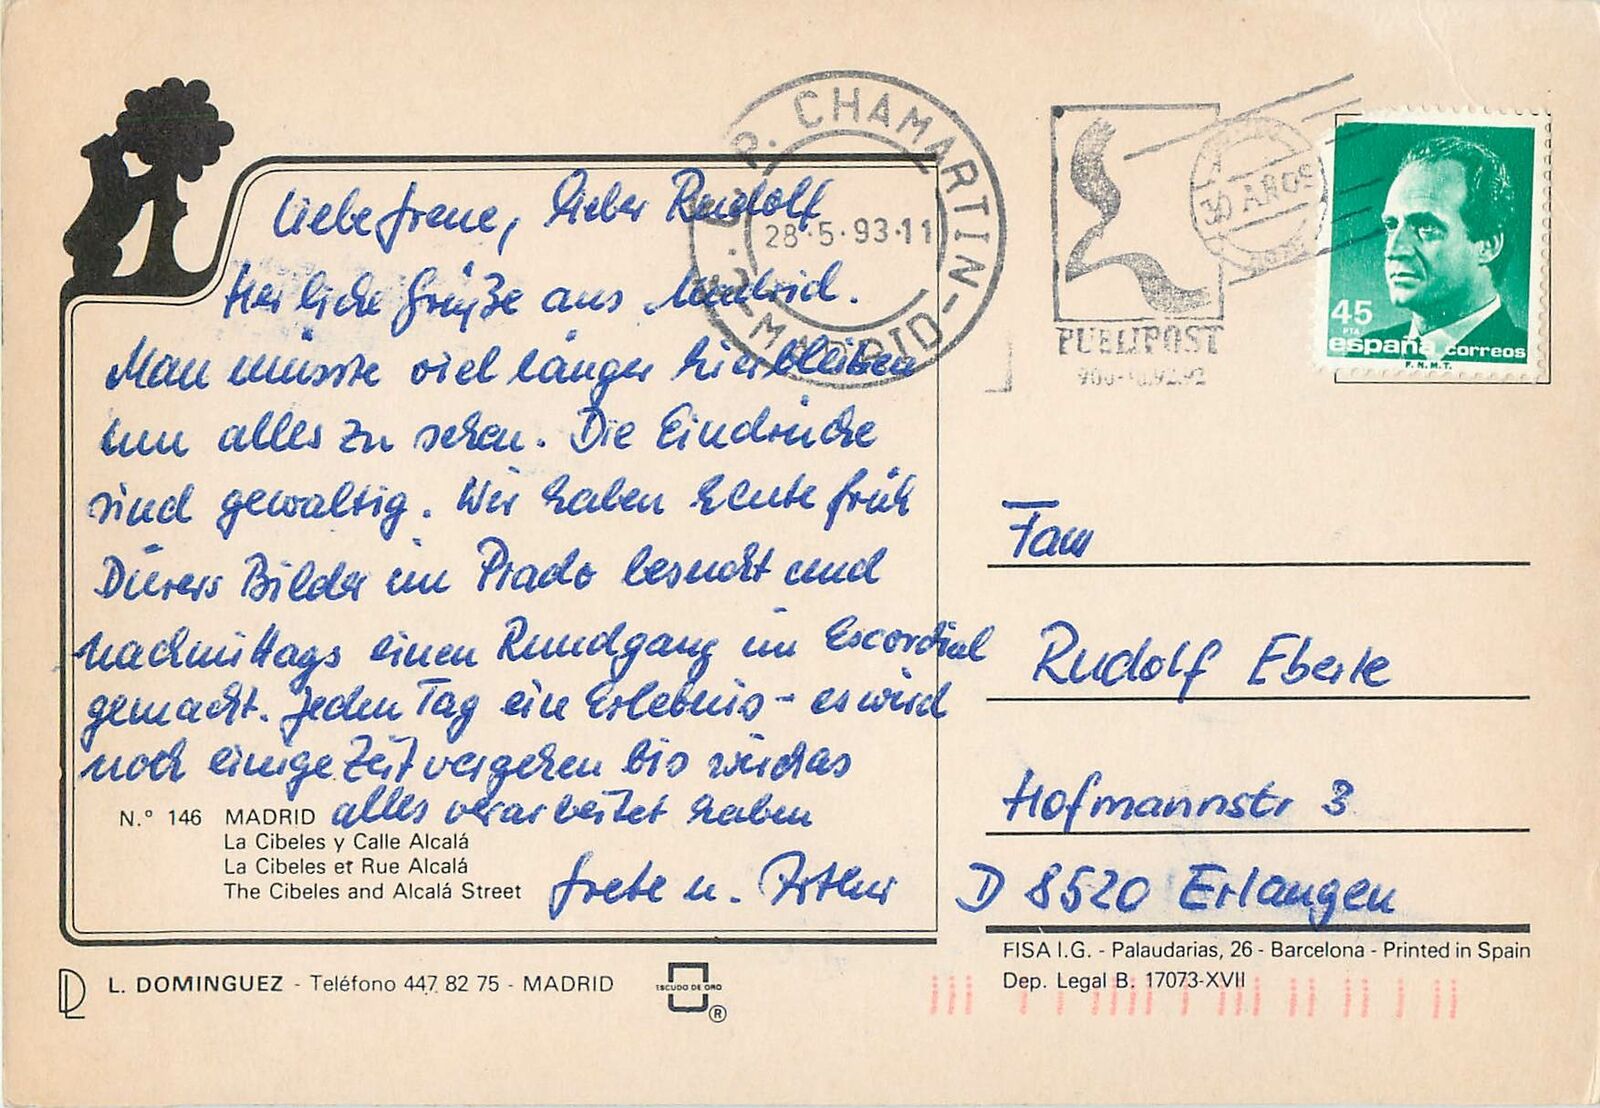 Liebe Irene, lieber Rudolf
Herzliche Grüße aus Madrid.
Man müsste viel länger hierbleiben
um alles zu sehen. Die Eindrücke
sind gewaltig. Wir haben heute früh
Dürers Bilder im Prado besucht und
nachmittags einen Rundgang im Escordial
gemacht. Jeden Tag ein Erlebnis - es wird
noch einige Zeit vergehen bis wir das
alles verarbeitet haben
Grete u. Arthur
N.° 146 MADRID
La Cibeles y Calle Alcalá
La Cibeles et Rue Alcalá
The Cibeles and Alcalá Street
L. DOMINGUEZ - Teléfono 447 82 75 - MADRID
ESCUDO DE ORO
®
P. CHAMARTIN - MADRID
28·5·93·11
PUBLIPOST
45
PTA
españa correos
F.N.M.T.
Fam
Rudolf Eberle
Hofmannstr 3
D 8520 Erlangen
FISA I.G. - Palaudarias, 26 - Barcelona - Printed in Spain
Dep. Legal B. 17073-XVII